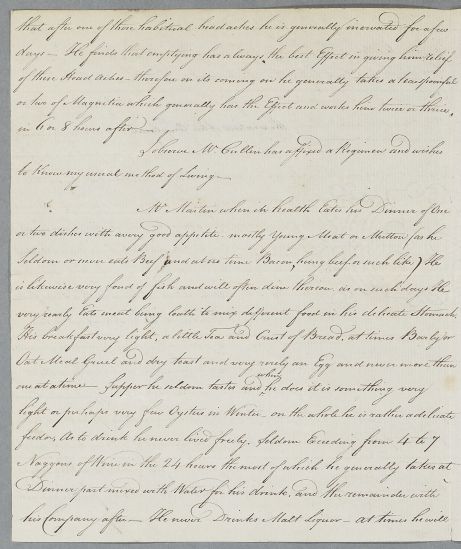 that after one of these habitual headaches he is generally enervated for a few
days — He finds that emptying has always the best Effect in giving him relief
of these Head aches — therefore on its coming on he generally takes a teaspoonful
or two of Magnetia which generally has the Effect and works him twice or thrice,
in 6 or 8 hours after
I observe Mr Cullen has affixed a Regimen and wishes
to know my usual method of Living —
Mr Martin when in health Eats his Dinner of One
or two dishes with a very good appetite mostly Young Meat or Mutton (as he
Seldom or never eats Beef and at no time Bacon, hung beef or such like) He
is likewise very fond of fish and will often dine thereon, as on such days He
very rarely Eats meat being loath to mix different food in his delicate Stomach,
His breakfast very light, a little Tea and Crust of Bread, at times Barly or
Oat Meal Gruel and dry toast and very rarely an Egg and never more than
one at a time — Supper he seldom tastes and when he does it is something very
light or perhaps very few Oysters in Winter on the whole he is rather a delicate
feeder, As to drink he never lived freely. Seldom Exceeding from 4 to 7
Naggons of Wine in the 24 hours the most of which he generally takes at
Dinner part mixed with Water for his drink, and the remainder with
his Company after — He never Drinks Malt Liquor — at times he will